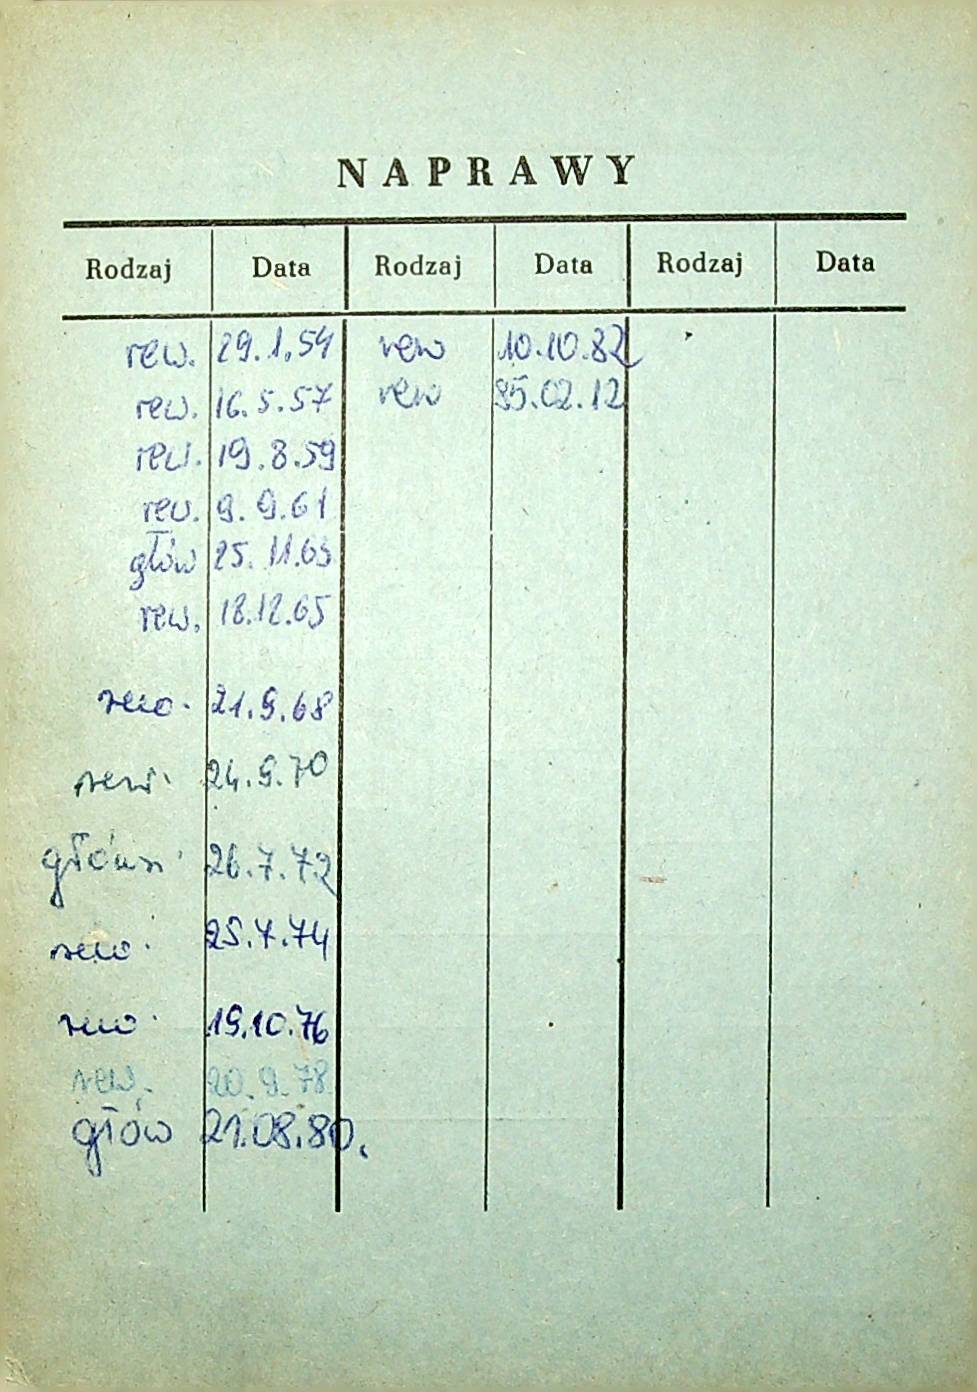 NAPRAWY
Rodzaj Data Rodzaj Data Rodzaj Data
rew. 29.1.54 rew 10.10.82
rew. 16.5.57 rew 85.02.12
rew. 19.8.59
rew. 9.9.61
głów 25.11.63
rew. 18.12.65
rew. 21.9.68
rew. 24.9.70
główn. 26.7.72
rew. 25.7.74
rew. 19.10.76
rew. 20.9.78
głów 21.08.80.